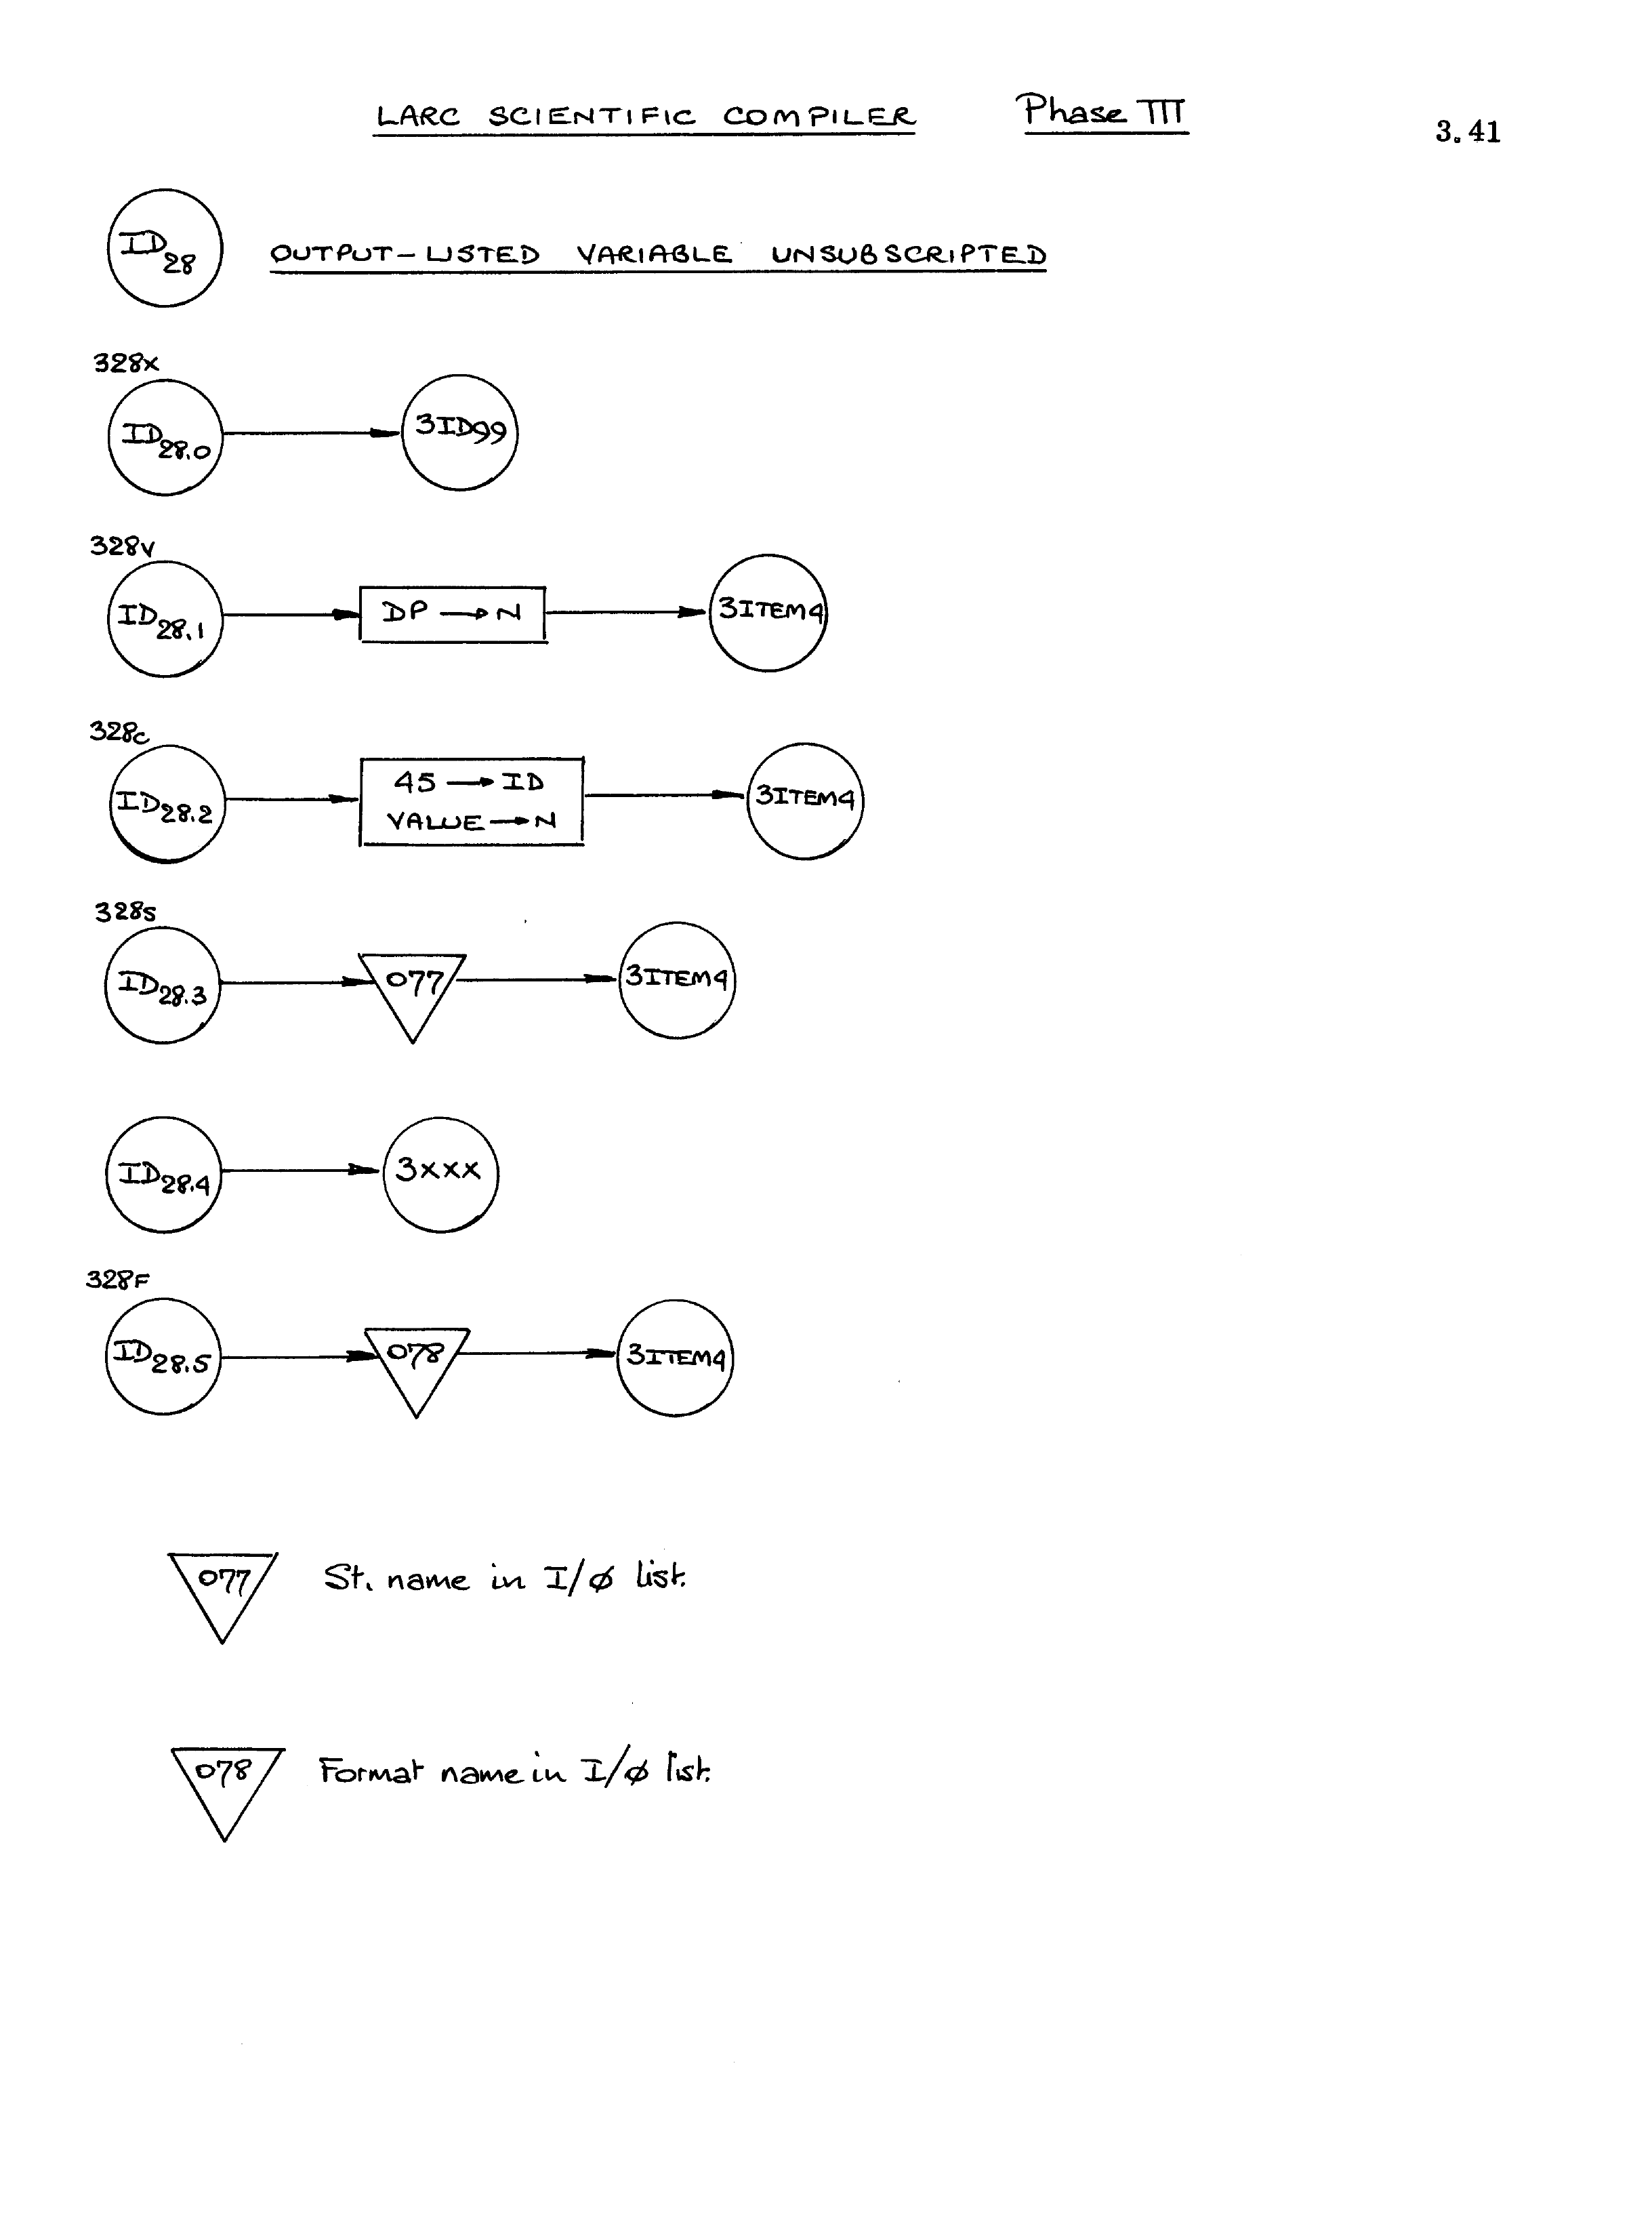 LARC SCIENTIFIC COMPILER Phase III
3.41
ID28 OUTPUT-LISTED VARIABLE UNSUBSCRIPTED
328x
ID28.0 3ID99
328v
ID28.1 DP → N 3ITEM4
328c
ID28.2 45 → ID 3ITEM4
VALUE → N
328s
ID28.3 077 3ITEM4
ID28.4 3xxx
328F
ID28.5 078 3ITEM4
077 St. name in I/Ø list.
078 Format name in I/Ø list.